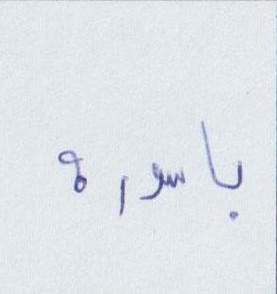 باسورة